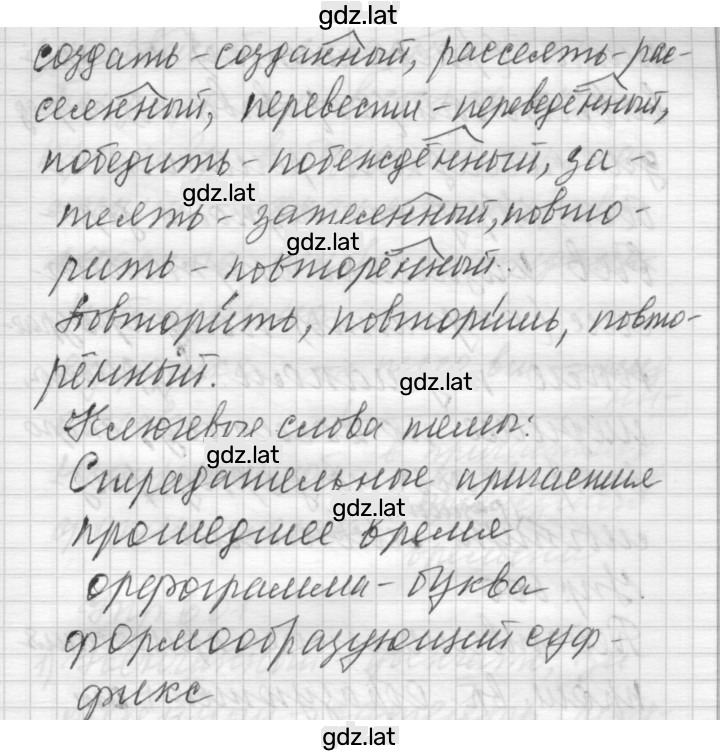 gdz.lat
создать - созданный, рассеять - рас-
сеянный, перевести - переведённый,
победить - побеждённый, за-
gdz.lat
теять - затеянный, повто-
gdz.lat
рить - повторённый.
Повтори́ть, повтори́шь, повто-
рённый.
gdz.lat
Ключевые слова темы:
gdz.lat
Страдательные причастия
gdz.lat
прошедшее время
орфограмма - буква
формообразующий суф-
фикс
gdz.lat